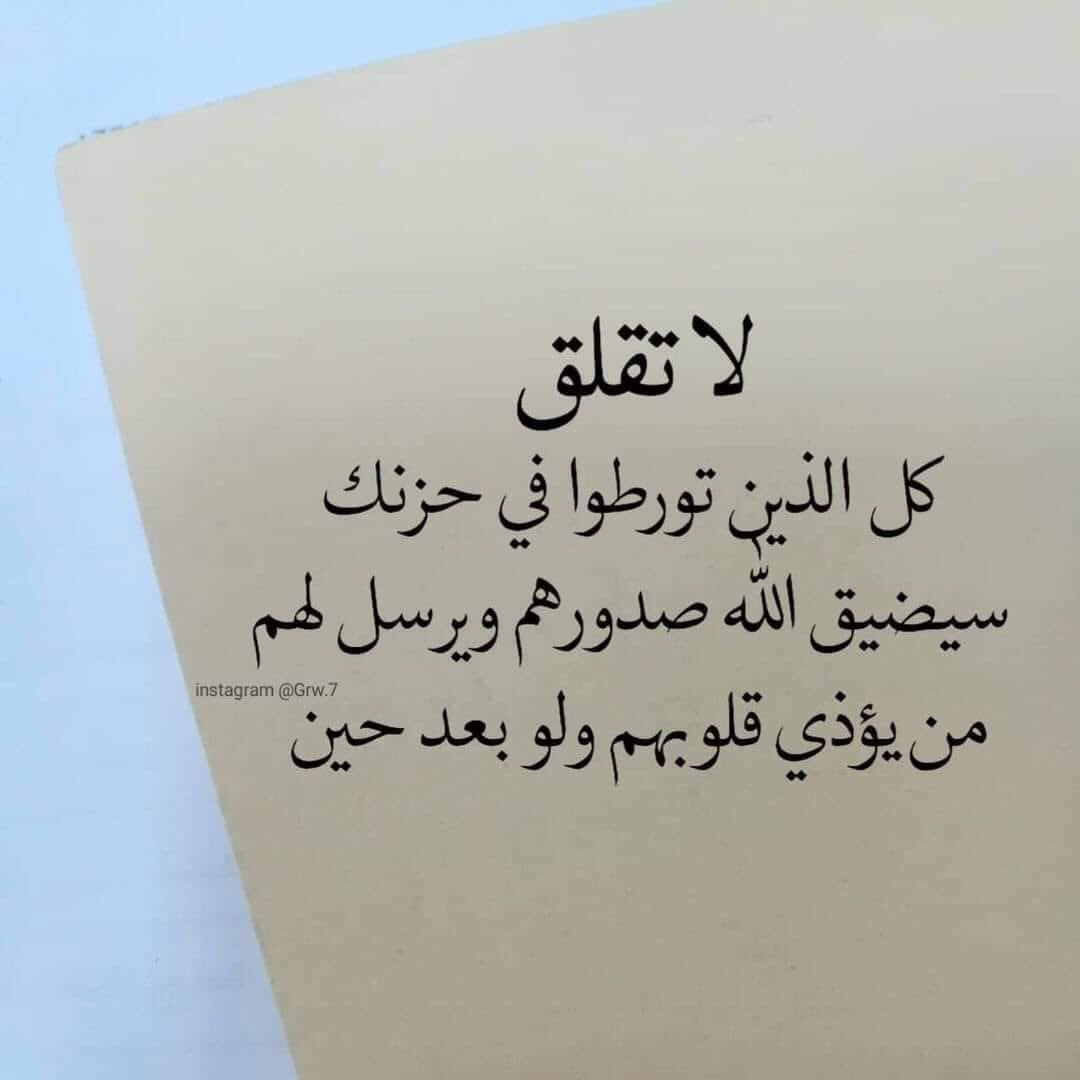 لا تقلق
كل الذين تورطوا في حزنك
سيضيق الله صدورهم ويرسل لهم
instagram @Grw.7
من يؤذي قلوبهم ولو بعد حين